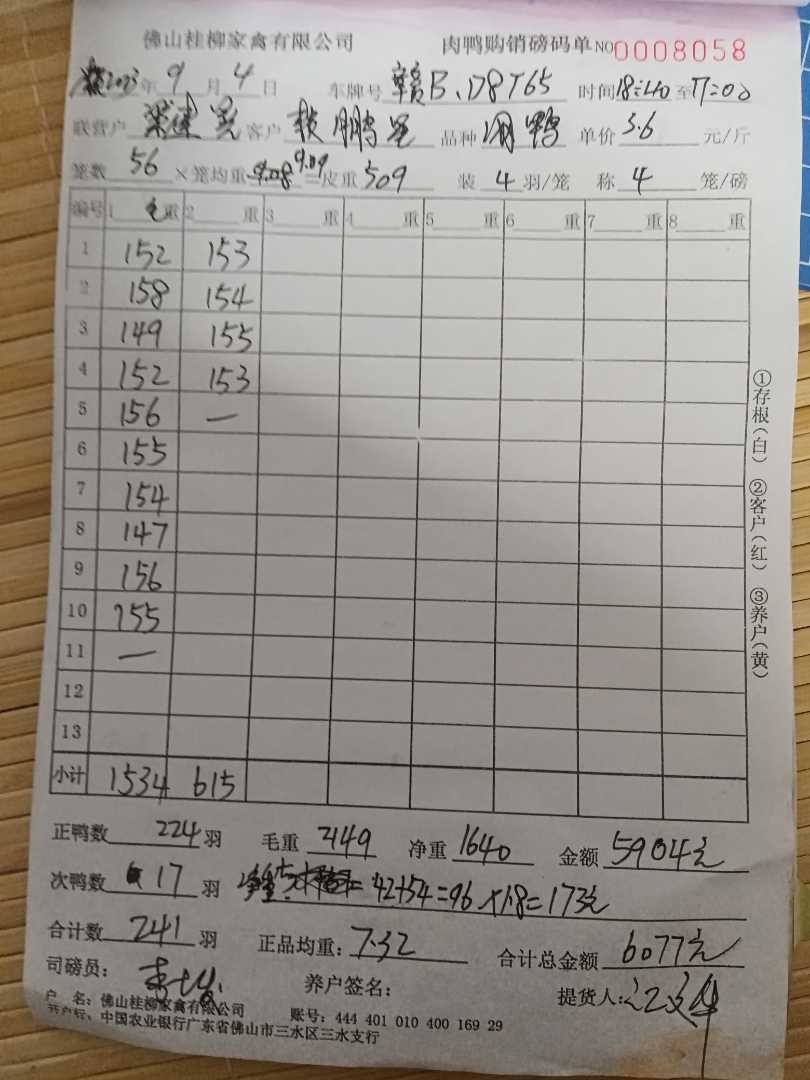 佛山桂柳家禽有限公司 肉鸭购销磅码单 NO0008058
2023年 9 月 4 日 车牌号 赣B.D8765 时间 至17:00
联营户 客户 鹏 品种 鸭 单价 3.6 元/斤
笼数 56 ×笼均重 9.09 =皮重 509 装 4 羽/笼 称 4 笼/磅
编号 1 毛重 2 重 3 重 4 重 5 重 6 重 7 重 8 重
1 152 153
2 158 154
3 149 155
4 152 153
5 156 —
6 155
7 154
8 147
9 156
10 155
11 —
12
13
小计 1534 615
正鸭数 224 羽 毛重 2149 净重 1640 金额 5904元
次鸭数 17 羽 42+54=96×1.8=173元
合计数 241 羽 正品均重: 7.32 合计总金额 6077元
司磅员: 养户签名: 提货人:
户 名: 佛山桂柳家禽有限公司 账号: 444 401 010 400 169 29
开户行: 中国农业银行广东省佛山市三水区三水支行
①存根(白) ②客户(红) ③养户(黄)